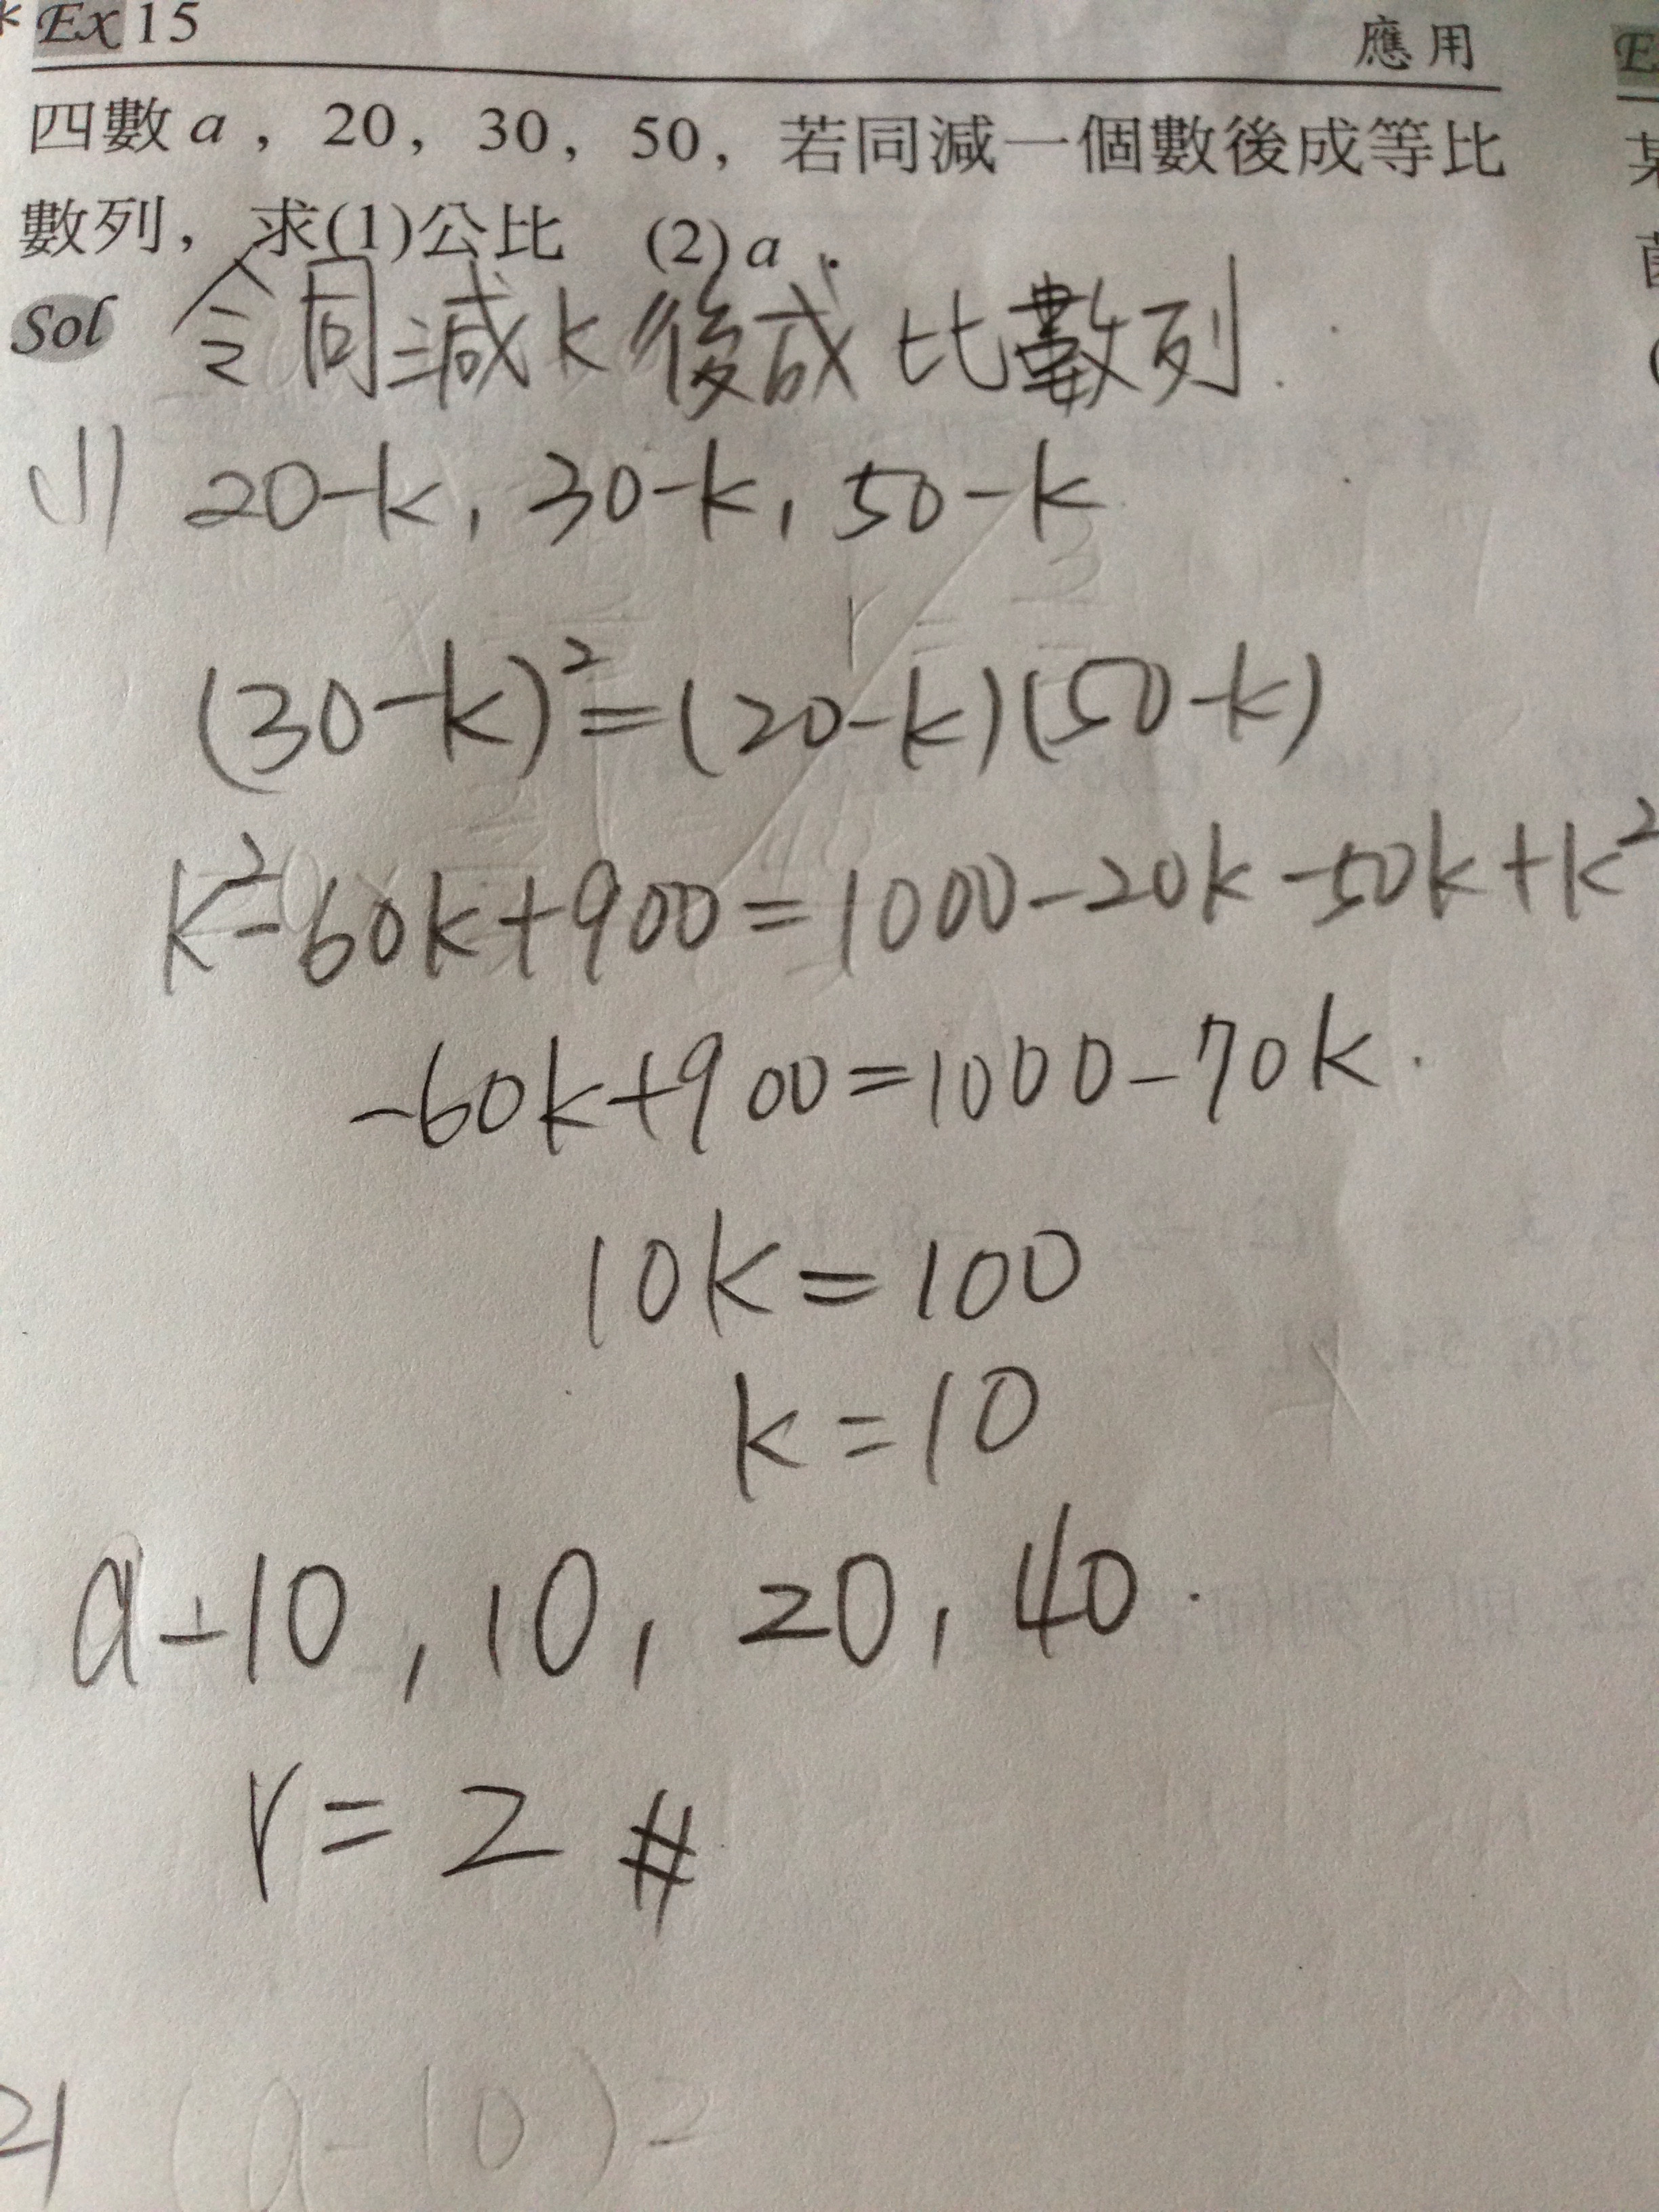 * Ex 15 應用
四數 a , 20 , 30 , 50 , 若同減一個數後成等比
數列 , 求(1)公比 (2) a .
Sol 令同減 k 後成 比數列 .
(1) 20-k , 30-k , 50-k
(30-k)²=(20-k)(50-k)
k²-60k+900=1000-20k-50k+k²
-60k+900=1000-70k .
10k=100
k=10
a-10 , 10 , 20 , 40 .
r=2 #
2) (a-10)=